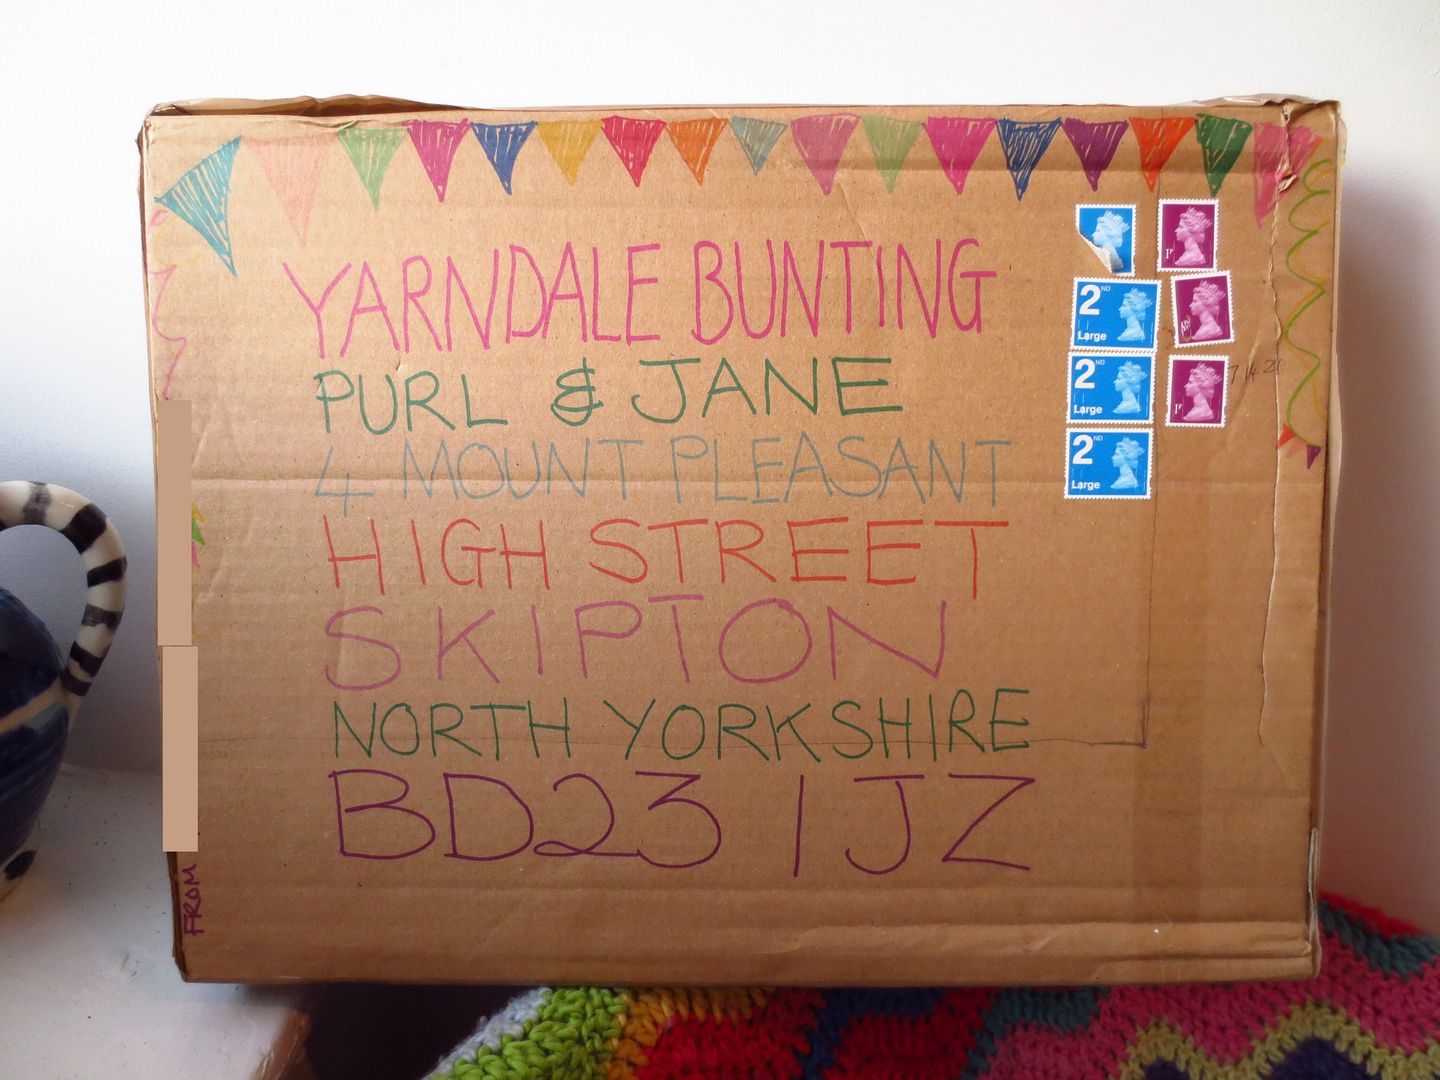 YARNDALE BUNTING
PURL & JANE
4 MOUNT PLEASANT
HIGH STREET
SKIPTON
NORTH YORKSHIRE
BD23 1JZ
FROM
1P
2ND
Large
2ND
Large
1P
2ND
Large